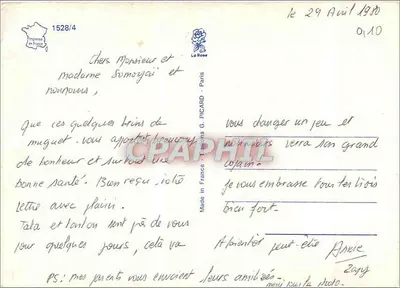 le 29 Avril 1980
0,10
Imprimé en France
1528/4
La Rose
Chers Monsieur et
madame Somogyi et
nounours,
Que ces quelques brins de
muguet vous apportent beaucoup
de bonheur et surtout une
bonne santé. Bien reçu votre
lettre avec plaisir.
Tata et tonton sont près de vous
pour quelques jours, cela va
vous changer un peu et
nounours verra son grand
copain.
je vous embrasse tous les trois
bien fort.
A bientôt peut-être
Annie
PS: mes parents vous envoient leurs amitiés.
merci pour la photo.
Made in France
PICARD - Paris
CPAPHIL